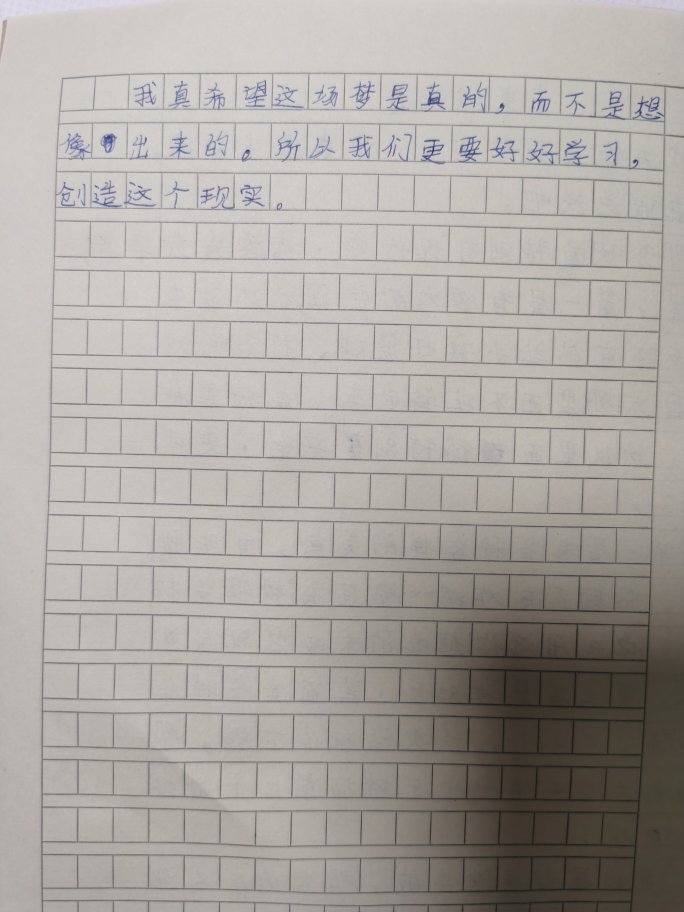 我真希望这场梦是真的，而不是想
像出来的。所以我们更要好好学习，
创造这个现实。